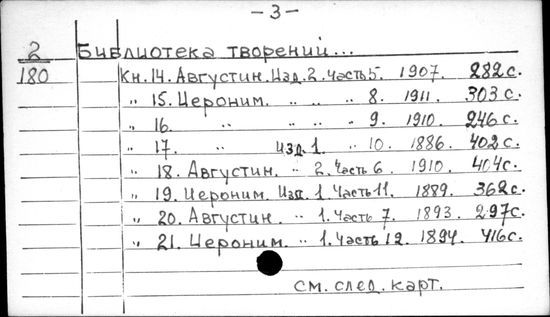 - 3 -
2 Библиотека творений...
180 Кн. 14. Августин. Изд. 2. Часть 5. 1907. 282 с.
" 15. Иероним. " " " 8. 1911. 303 с.
" 16. " " " 9. 1910. 246 с.
" 17. " Изд. 1. " 10. 1886. 402 с.
" 18. Августин. " 2. Часть 6. 1910. 404 с.
" 19. Иероним. Изд. 1. Часть 11. 1889. 362 с.
" 20. Августин. " 1. Часть 7. 1893. 297 с.
" 21. Иероним. " 1. Часть 12. 1894. 416 с.
см. след. карт.